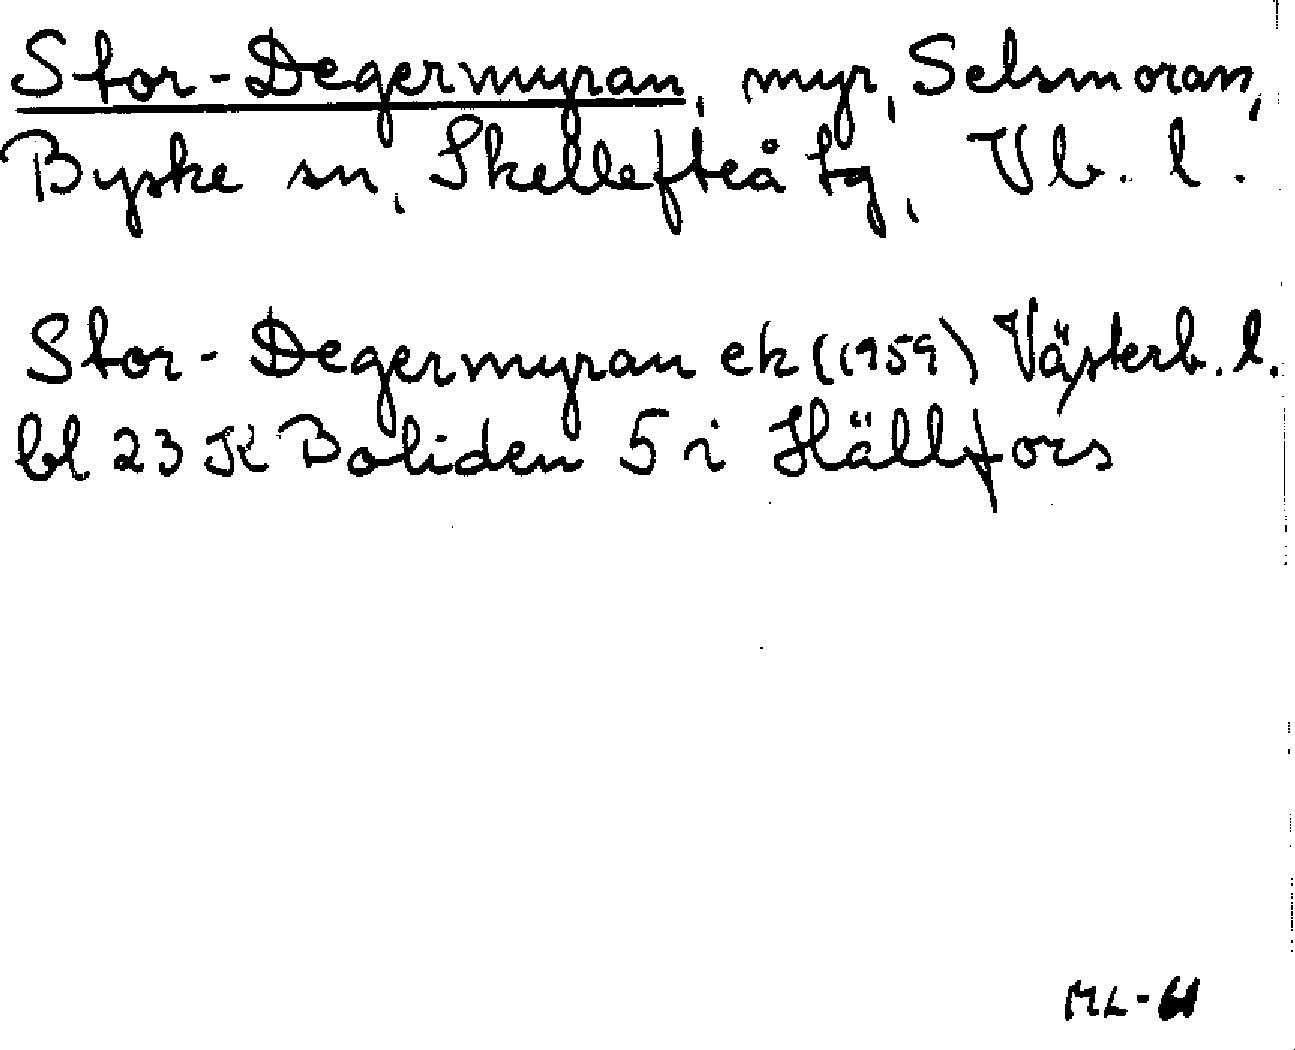 Stor-Degermyran, myr, Selsmoran,
Byske sn, Skellefteå tg, Vb. l.
Stor-Degermyran ek (1959) Västerb. l.
bl 23 K Boliden 5 i Hällfors
ML-61